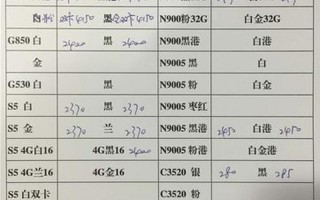 白 4150 黑 4150 N900粉32G 白金32G
G850 白 2400 黑 2400 N900黑港 白港
金 N9005 黑 白
G530 白 黑 N9005 粉 白金
S5 白 2370 黑 2370 N9005 枣红
S5 金 2370 兰 2370 N9005 黑港 2450 白港 2450
S5 4G白16 4G黑16 2400 N9005 粉港 白金港
S5 4G兰16 4G金16 C3520 银 280 黑 285
S5 白双卡 C3520 粉